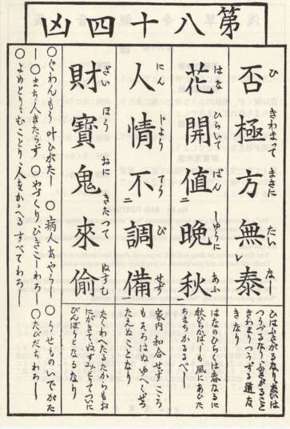 第八十四凶
否極方無泰
ひ きわまつて まさに たい なし
ひはふさがるなり泰は
つうずるなりふさがること
きはまりつうずる道な
きなり
花開値晩秋
はな ひらいて ばん しゆうに あふ
はなのひらくは春なるに
秋ひらかば も風にあひた
ちまちかるるべし
人情不調備
にん じよう てう び せず
家内和合せずこころ
もそろはぬゆへくぜち
たえぬことなり
財寶鬼來偷
ざい ほう おに きたつて ぬすむ
たくわへたるたからもお
にがきてぬすみとつて
びんぼうとなるなり
○ぐわんもう叶ひがたし ○病人あやうし ○うせものいでがた
し ○まち人きたらず ○やづくりひきこしわろし ○たびだちわろし
○よめとりむことり人をかかへるすべてわろし